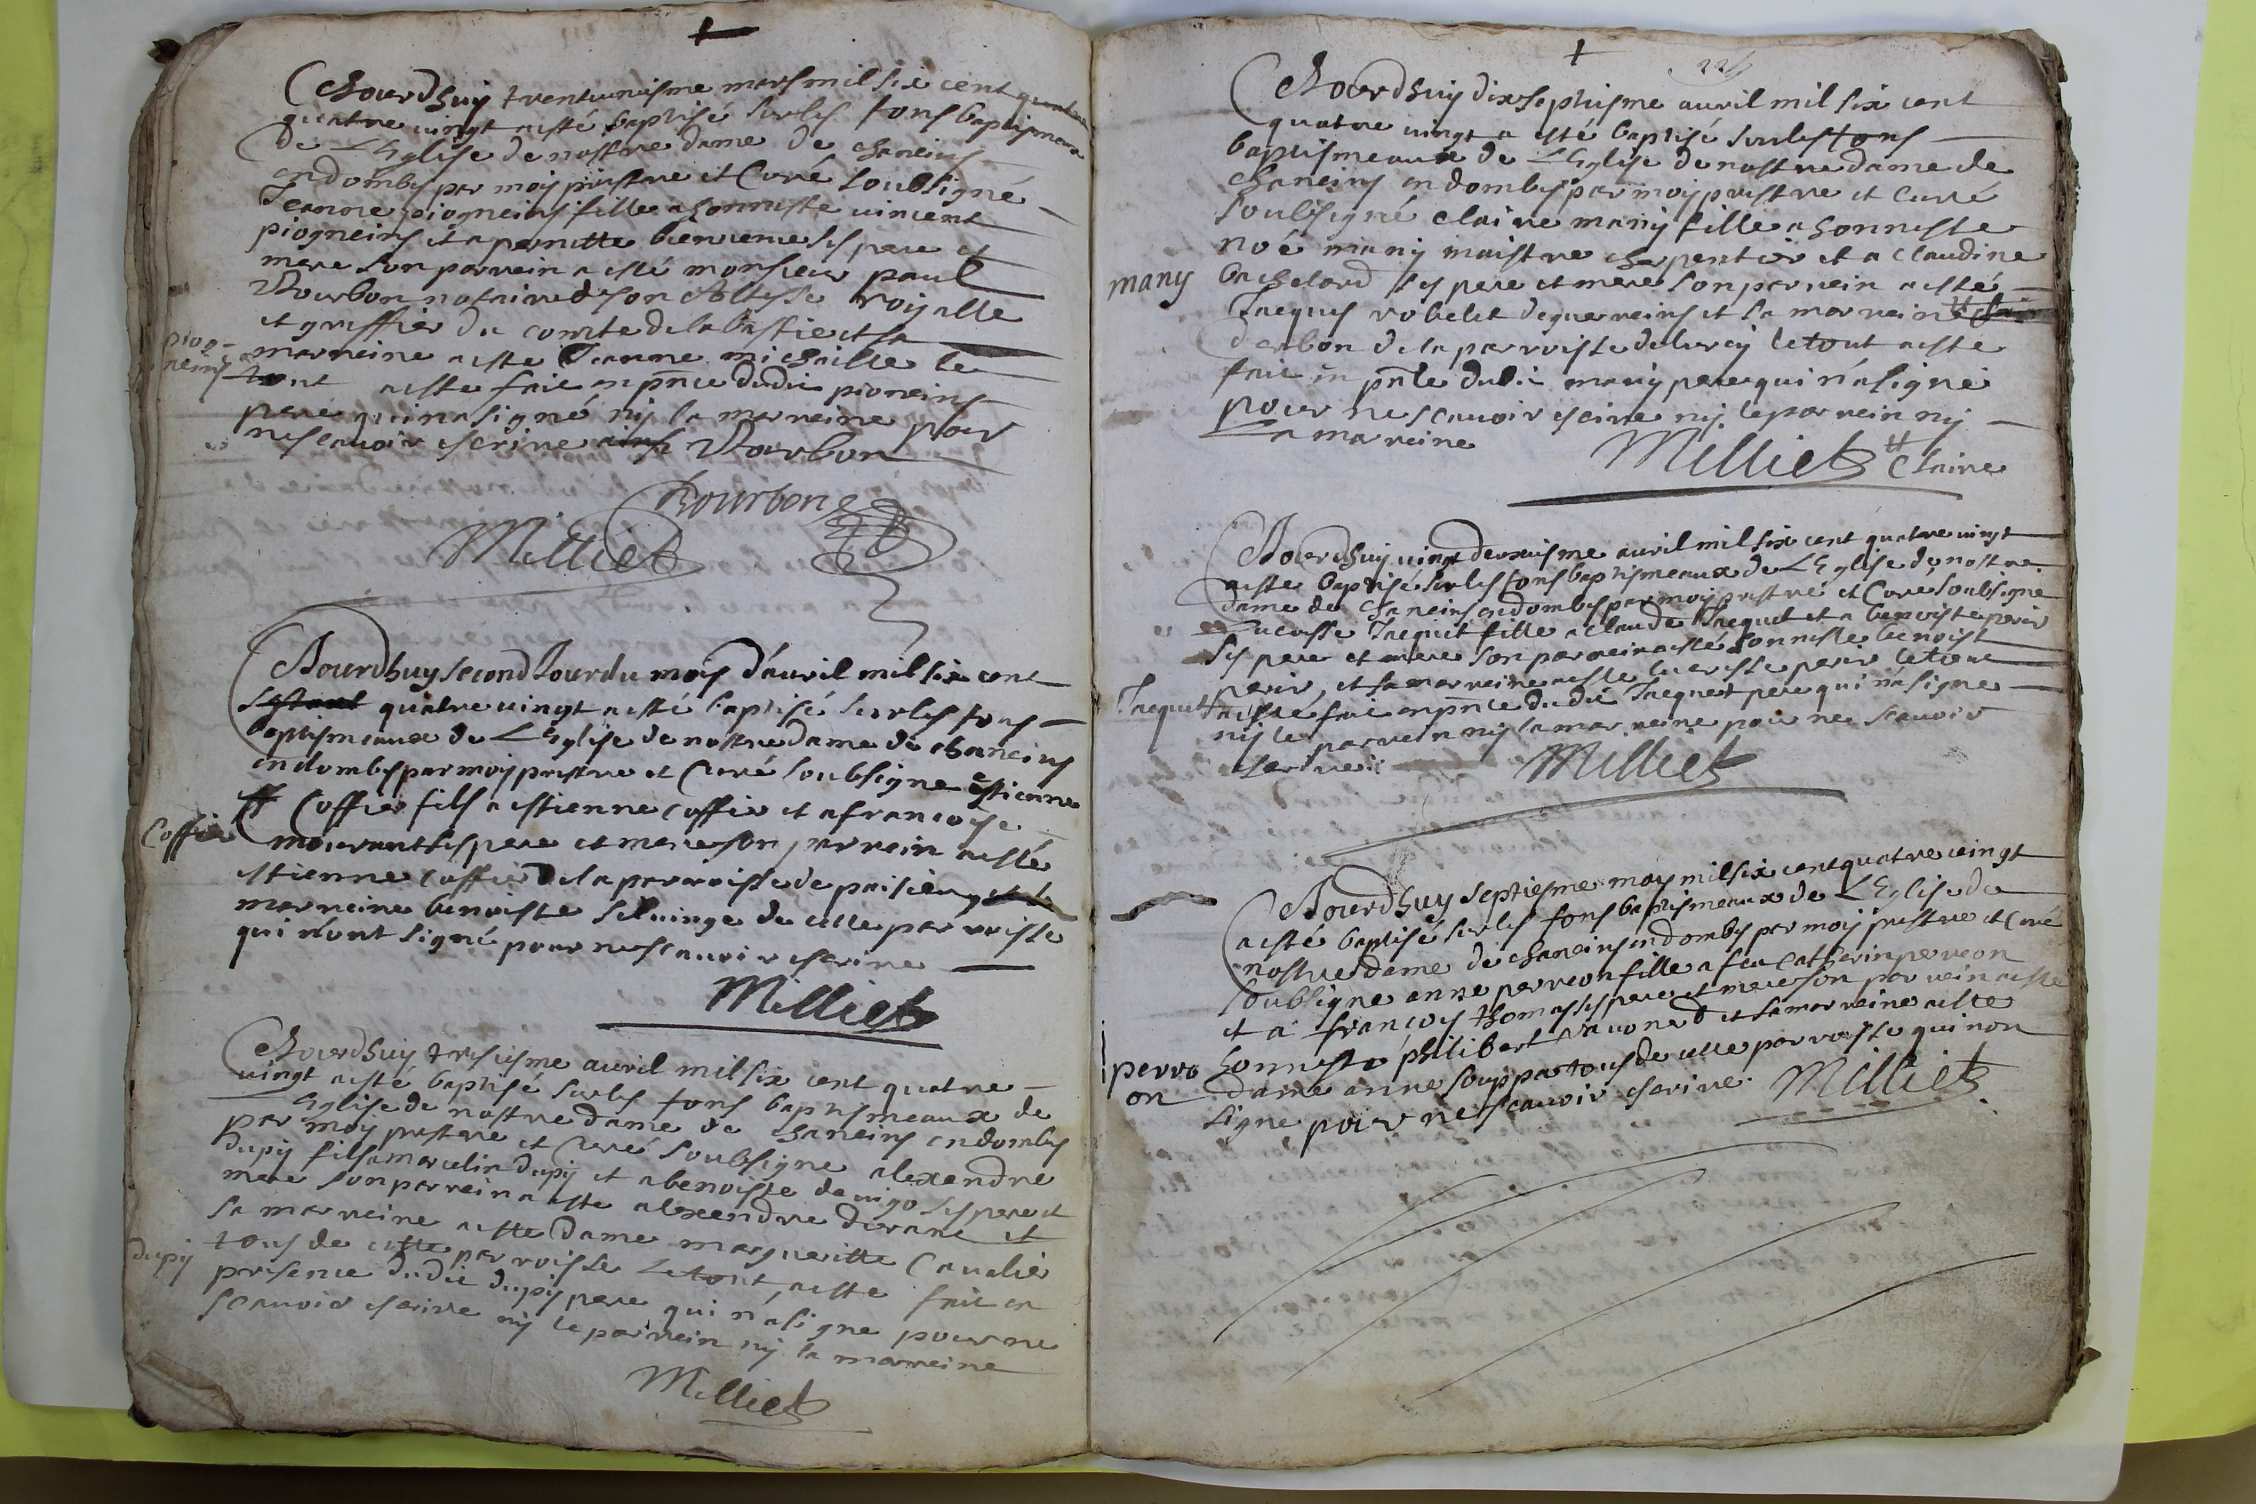 Aourdhuy trentuniesme mars mil six cent
quatre vingt a esté baptisé sur les fons baptismeaux
de L'Eglise de nostre dame de chaneins
en dombes par moy prestre et Curé soubsigné
Jeanne piogneins fille a honneste vincent
piogneins et a pernette bienvenue ses pere et
mere son parrein a esté monsieur paul
Bourbon notaire de son Altesse royalle
et greffier du comte de la bastie et sa
marreine a este Jeanne michaille le
tout a este faict en pnce dudit pioneins
pere qui n'a signé ny la marreine pour
ne scavoir escrire Bourbon
piog-
neins
Bourbon
Milliet
Aourdhuy second Jour du mois d'avril mil six cent
quatre vingt a esté baptisé sur les fons
baptismeaux de L'Eglise de nostre dame de chaneins
en dombes par moy prestre et Curé soubsigne estienne
Coffier fils a estienne Coffier et a francoise
mourant ses pere et mere son parrein a esté
estienne Coffier de la parroisse de
marreine benoiste de cette parroisse
qui n'ont signé pour ne scavoir escrire
Coffier
Milliet
Aourdhuy tresiesme avril mil six cent quatre
vingt a esté baptisé sur les fons baptismeaux de
L'Eglise de nostre dame de chaneins en dombes
par moy prestre et Curé soubsigne alexendre
dupy fils a marcelin dupy et a benoiste ses pere et
mere son parrein a este alexendre durand et
sa marreine a este dame marguerite Cavalier
tous de cette parroisse Le tout a este faict en
presence dudit dupy pere qui n'a signe pour ne
scavoir escrire ny le parrein ny la marreine
dupy
Milliet
Aourdhuy dix septiesme avril mil six cent
quatre vingt a esté baptisé sur les fons
baptismeaux de L'Eglise de nostre dame de
chaneins en dombes par moy prestre et curé
soubsigné claire many fille a honneste
noé many maistre charpentier et a Claudine
bachelard ses pere et mere son parrein a esté
Jacques robelet de guerreins et sa marreine #
darbon de la parroisse de lurcy le tout a este
faict en pnce dudit many pere qui n'a signé
pour ne scavoir escrire ny le parrein ny
la marreine
many
Milliet # Claire
Aourdhuy vingt deuxiesme avril mil six cent quatre vingt
a este baptisé sur les fons baptismeaux de L'Eglise de nostre
dame de chaneins en dombes par moy prestre et Curé soubsigné
Jaquet fille a claude Jaquet et a benoiste perir
ses pere et mere son parrein a esté honneste benoist
perir, et sa marreine a este perir le tout
a esté faict en pnce dudit Jaquet pere qui n'a signe
ny le parrein ny la marreine pour ne scavoir
escrire
Jaquet
Milliet
Aourdhuy septiesme may mil six cent quatre vingt
a esté baptisé sur les fons baptismeaux de L'Eglise de
nostre dame de chaneins en dombes par moy prestre et Curé
soubsigne anne perreon fille a feu catherin perreon
et a françoys thomas ses pere et mere son parrein a este
honneste philibert et sa marreine a este
dame anne tous de cette parroisse qui n'on
signe pour ne scavoir escrire.
perre
on
Milliet